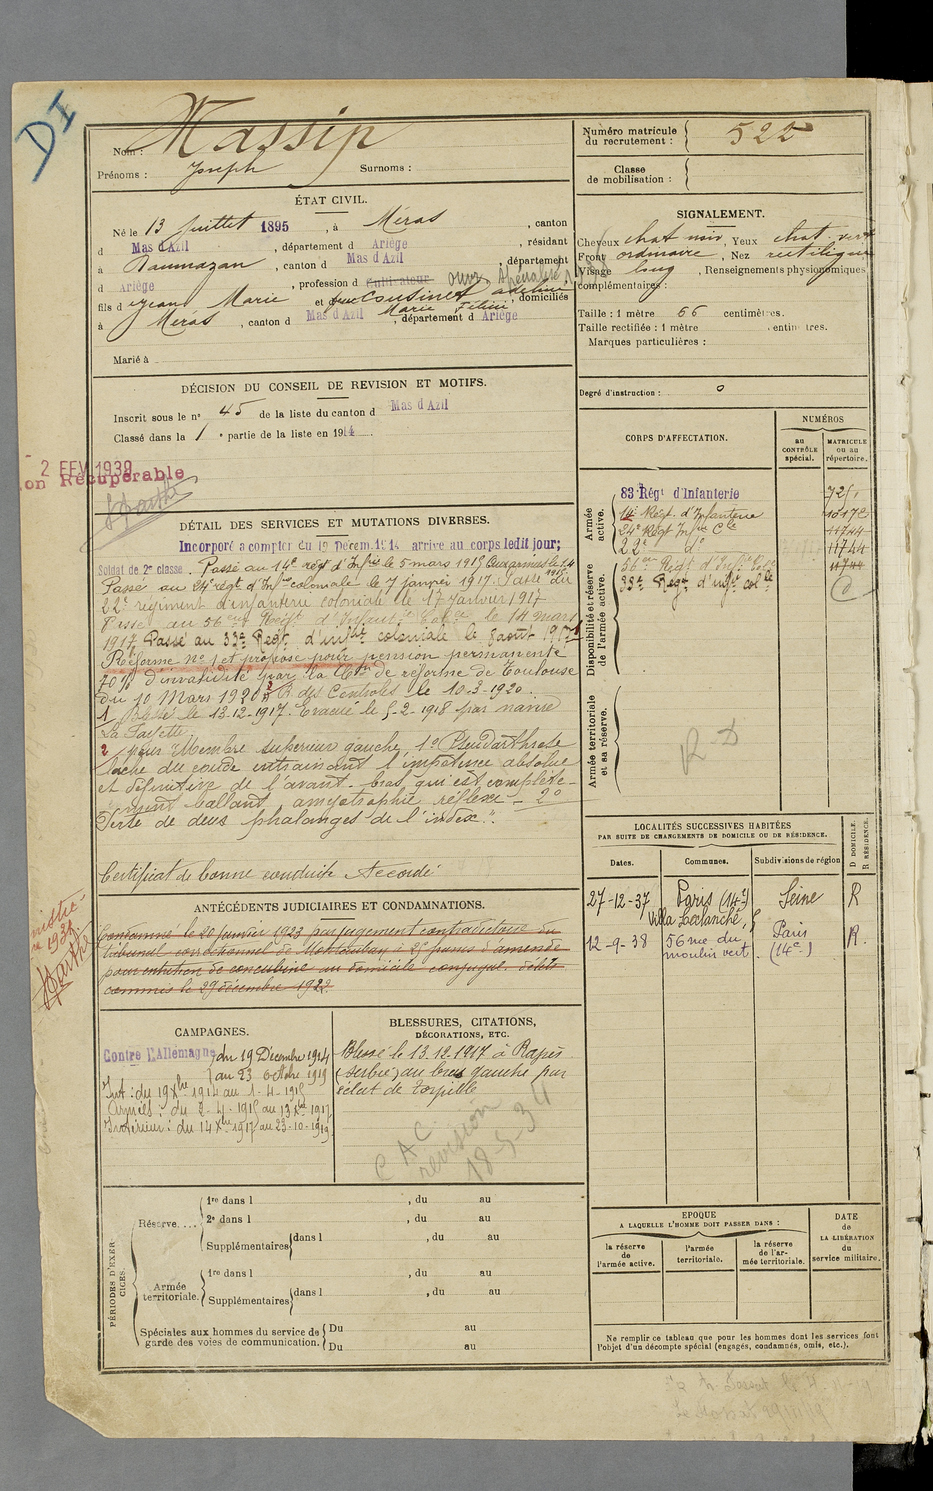 DI
Nom : Massip
Prénoms : Joseph Surnoms :
Numéro matricule du recrutement : 522
Classe de mobilisation :
ÉTAT CIVIL.
Né le 13 juillet 1895, à Méras, canton
d Mas d'Azil, département d Ariège, résidant
à Daumazan, canton d Mas d'Azil, département
d Ariège, profession d Cultivateur ouvr. spécialisé
fils d Jean Marie et de Cousinet Adeline Marie, domiciliés
à Méras, canton d Mas d'Azil, département d Ariège
Marié à
SIGNALEMENT.
Cheveux chat noir, Yeux chat. vert
Front ordinaire, Nez rectiligne
Visage long, Renseignements physionomiques
complémentaires :
Taille : 1 mètre 66 centimètres.
Taille rectifiée : 1 mètre centimètres.
Marques particulières :
Degré d'instruction : 0
DÉCISION DU CONSEIL DE REVISION ET MOTIFS.
Inscrit sous le n° 45 de la liste du canton d Mas d'Azil
Classé dans la 1 e partie de la liste en 1914
- 2 FEV 1939
on Récupérable
DÉTAIL DES SERVICES ET MUTATIONS DIVERSES.
Incorporé a compter du 19 Décem. 1914 arrive au corps ledit jour;
Soldat de 2e classe. Passé au 14e régt d'Infrie le 5 mars 1915 Aux armées le 2.4 1915
Passé au 24e régt d'Inf. coloniale le 7 janvier 1917. Passé au
22e régiment d'infanterie coloniale le 17 janvier 1917
Passé au 56eme Régt d'Infantie Colale le 14 mars
1917 Passé au 33e Régt d'infrie coloniale le 1 août 1917
Réformé no 1 et proposé pour pension permanente
70% d'invalidité par la Con de réforme de Toulouse
du 10 Mars 1920 R. des Contrôles le 10-3-1920.
1 Blessé le 13-12-1917. Evacué le 5-2-1918 par navire
La Fayette.
2 pour Membre supérieur gauche, 1° Pseudarthrose
lache du coude entrainant l'impotence absolue
et définitive de l'avant-bras qui est complète-
ment ballant, amyotrophie réflexe - 2°
Perte de deux phalanges de l'index".
Certificat de bonne conduite Accordé
ANTÉCÉDENTS JUDICIAIRES ET CONDAMNATIONS.
Condamné le 20 janvier 1923 par jugement contradictoire du
tribunal correctionnel de Montauban à 25 francs d'amende
pour entretien de concubine au domicile conjugal. délits
commis le 29 décembre 1922.
CAMPAGNES.
Contre l'Allemagne du 19 Décembre 1914
au 23 Octobre 1919
Int : du 19 Xbre 1914 au 1-4-1915
Armées : du 2-4-1915 au 13 Xbre 1917
Intérieur : du 14 Xbre 1917 au 23-10-1919
BLESSURES, CITATIONS,
DÉCORATIONS, ETC.
Blessé le 13.12.1917 à Rapès
(Serbie) au bras gauche par
éclat de torpille
C A C
revision
18-5-34
PÉRIODES D'EXERCICES.
Réserve....
1re dans l , du au
2e dans l , du au
Supplémentaires dans l , du au
Armée territoriale.
1re dans l , du au
Supplémentaires dans l , du au
Spéciales aux hommes du service de
garde des voies de communication.
Du au
Du au
CORPS D'AFFECTATION.
NUMÉROS
au CONTRÔLE spécial.
MATRICULE ou au répertoire.
Armée active.
83 Régt d'Infanterie 7251
14e Régt. d'Infanterie 10172
24e Régt Infrie Cle 11744
22e do 11744
Disponibilité et réserve de l'armée active.
56me Regt d'Infie Colale 11744
33e Régt d'infie colle
Armée territoriale et sa réserve.
R-D
LOCALITÉS SUCCESSIVES HABITÉES
PAR SUITE DE CHANGEMENTS DE DOMICILE OU DE RÉSIDENCE.
Dates. Communes. Subdivisions de région
D DOMICILE. R RÉSIDENCE.
27-12-37 Paris (14e) Seine R
Villa Leclanché, 5
12-9-38 56 rue du Paris R.
moulin vert. (14e)
EPOQUE
A LAQUELLE L'HOMME DOIT PASSER DANS :
la réserve de l'armée active.
l'armée territoriale.
la réserve de l'armée territoriale.
DATE de LA LIBÉRATION du service militaire.
Ne remplir ce tableau que pour les hommes dont les services font
l'objet d'un décompte spécial (engagés, condamnés, omis, etc.).